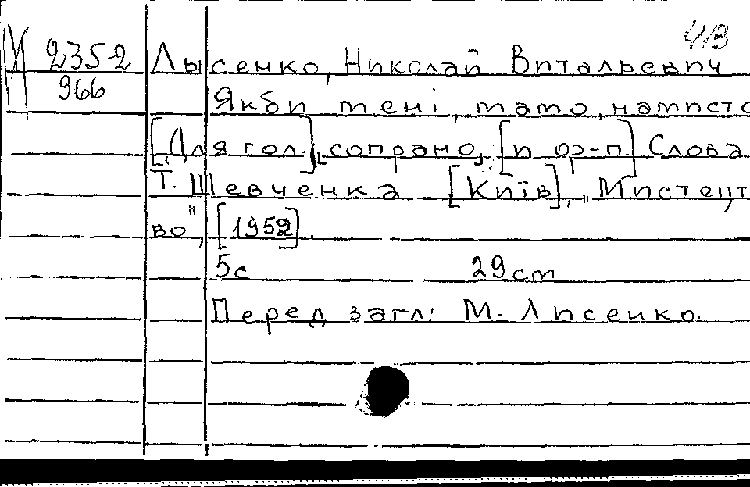 413
М 2352
966
Лысенко, Николай Витальевич
Якби мені, мамо, намисто
[Для гол.], сопрано, [п ф-п] Слова
Т. Шевченка [Київ], "Мистецт
во", [1952].
5с 29 cm
Перед загл: М. Лисенко.